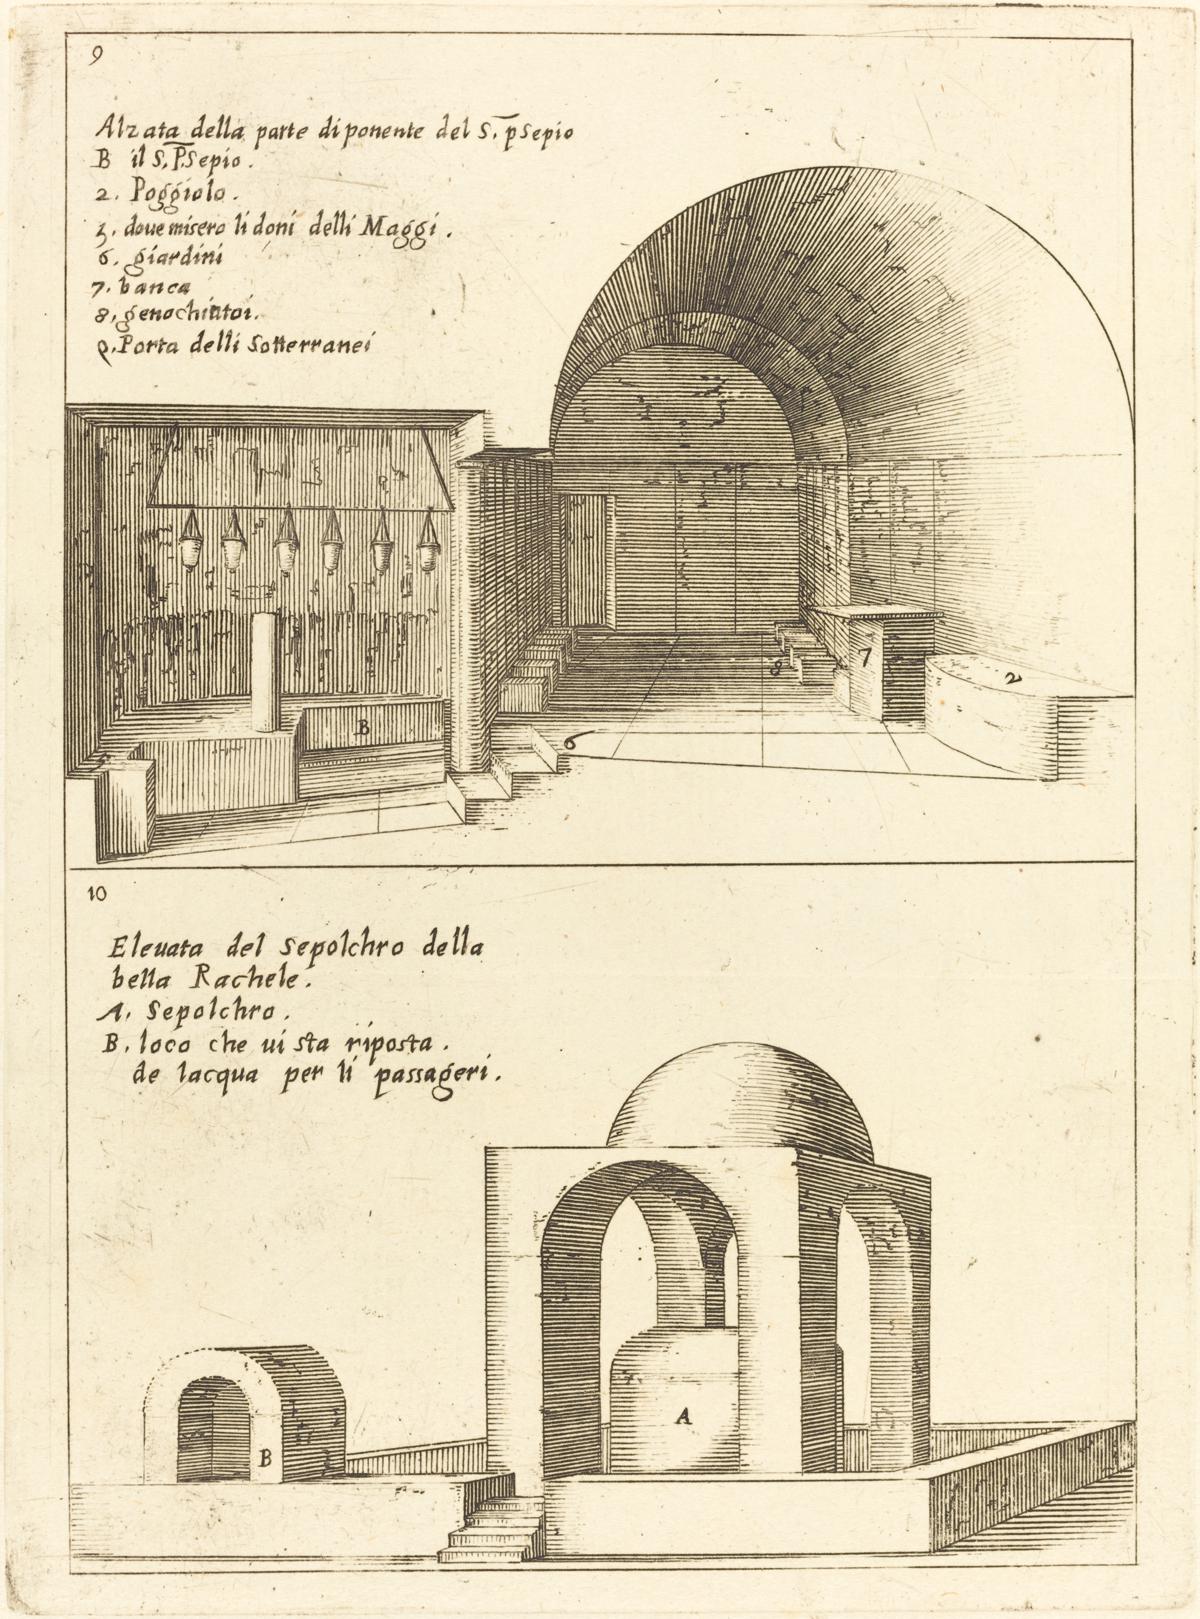 9
Alzata della parte di ponente del S. p̄sepio
B il S. P̄sepio.
2. Poggiolo.
3. doue misero li doni delli Maggi.
6. giardini
7. banca
8. genochiatoi.
9. Porta delli Sotterranei
B
6
8
7
2
10
Eleuata del Sepolchro della
bella Rachele.
A. Sepolchro.
B. loco che ui sta riposta.
de lacqua per li passageri.
A
B